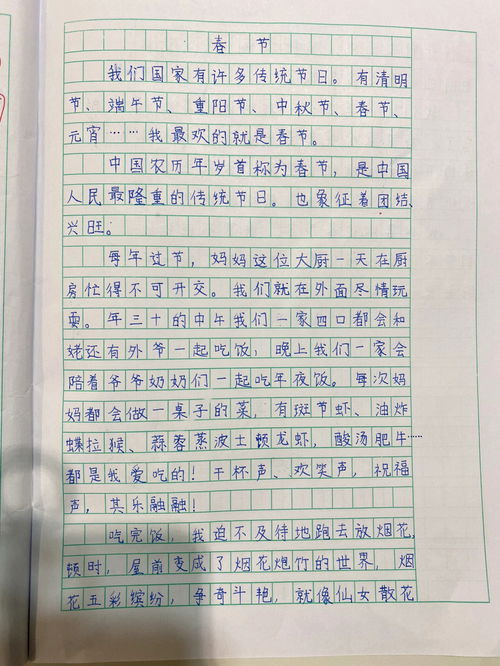 春节
我们国家有许多传统节日。有清明
节、端午节、重阳节、中秋节、春节、
元宵……我最欢的就是春节。
中国农历年岁首称为春节，是中国
人民最隆重的传统节日。也象征着团结、
兴旺。
每年过节，妈妈这位大厨一天在厨
房忙得不可开交。我们就在外面尽情玩
耍。年三十的中午我们一家四口都会和
姥还有外爷一起吃饭，晚上我们一家会
陪着爷爷奶奶们一起吃年夜饭。每次妈
妈都会做一桌子的菜，有斑节虾、油炸
蝶拉猴、蒜蓉蒸波士顿龙虾，酸汤肥牛……
都是我爱吃的！干杯声、欢笑声，祝福
声，其乐融融！
吃完饭，我迫不及待地跑去放烟花，
顿时，屋前变成了烟花炮竹的世界，烟
花五彩缤纷，争奇斗艳，就像仙女散花